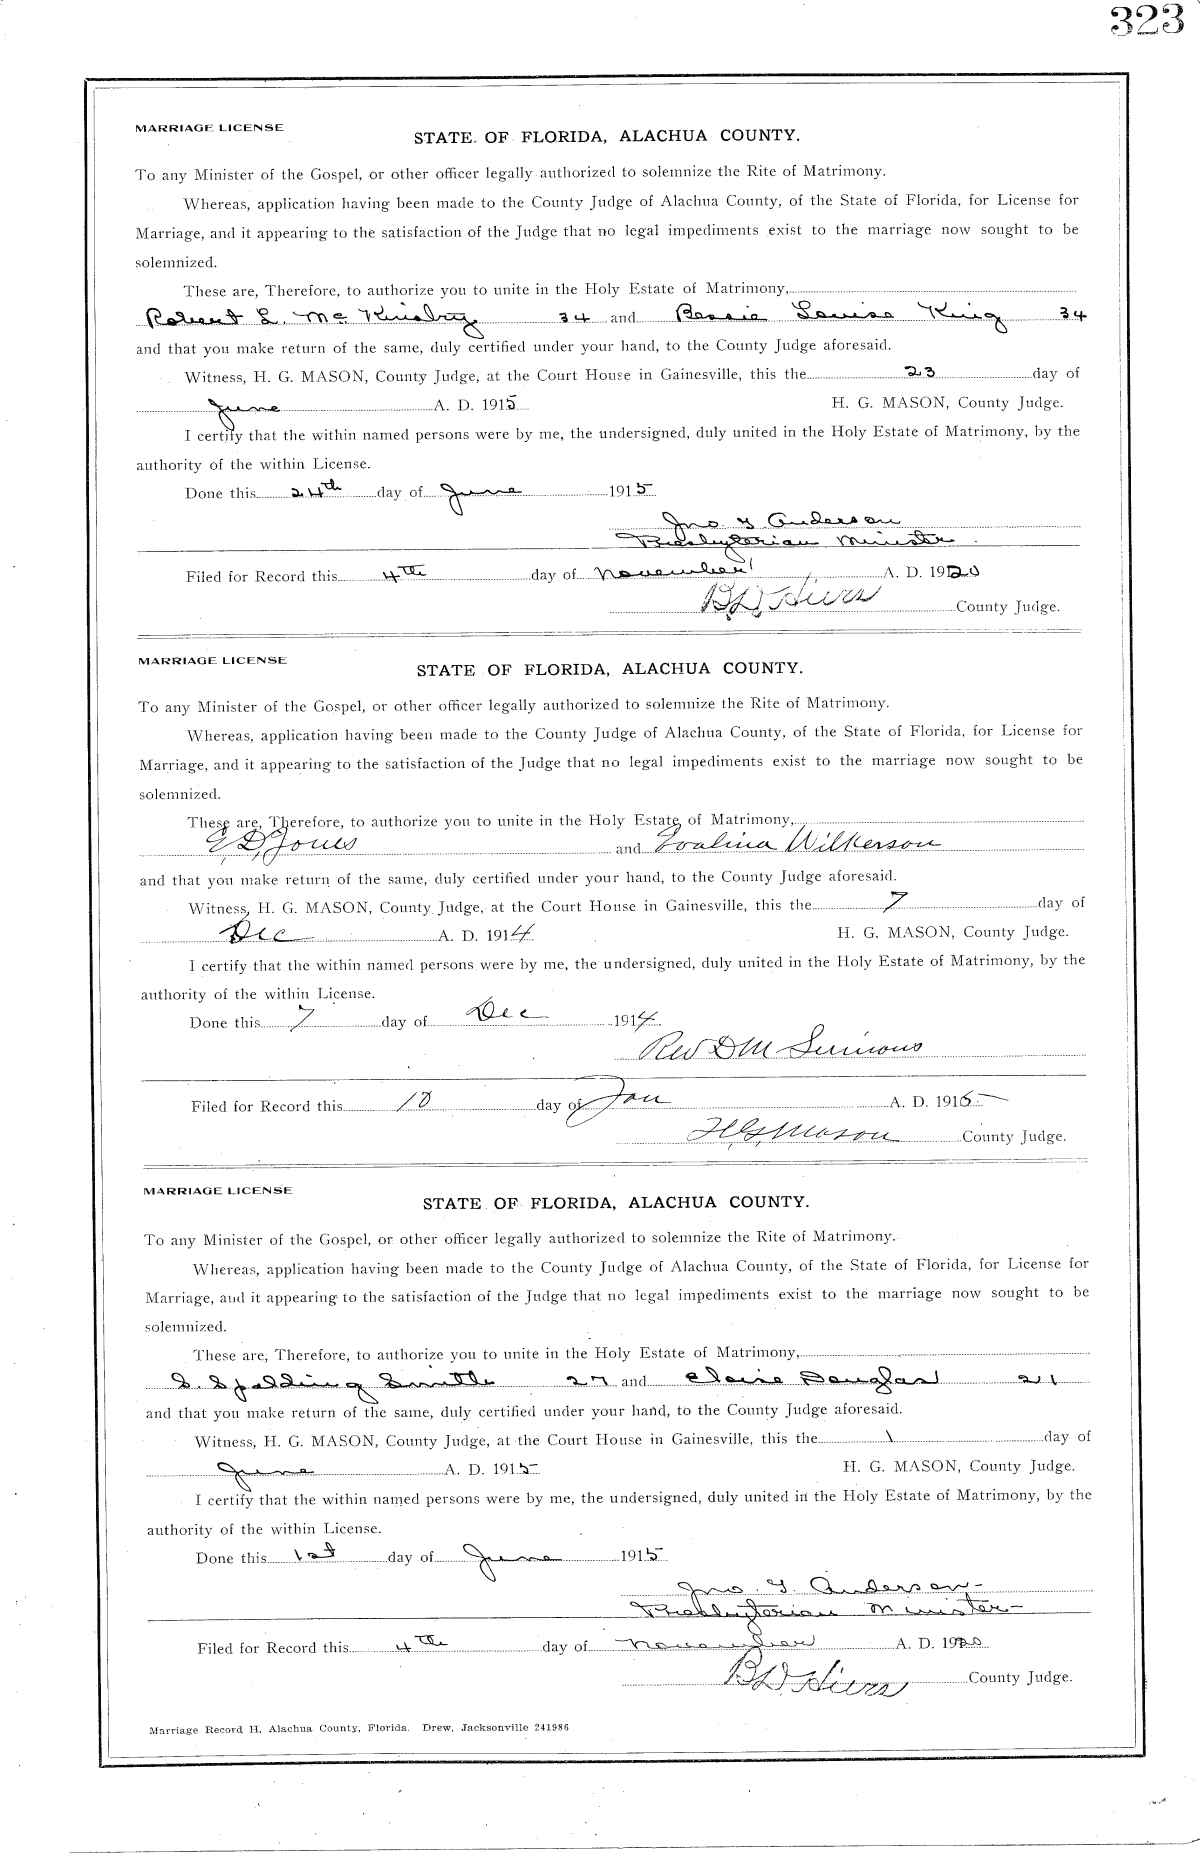 323
MARRIAGE LICENSE
STATE OF FLORIDA, ALACHUA COUNTY.
To any Minister of the Gospel, or other officer legally authorized to solemnize the Rite of Matrimony.
Whereas, application having been made to the County Judge of Alachua County, of the State of Florida, for License for
Marriage, and it appearing to the satisfaction of the Judge that no legal impediments exist to the marriage now sought to be
solemnized.
These are, Therefore, to authorize you to unite in the Holy Estate of Matrimony,
Robert L. Mc 34 and Bessie Louise King 34
and that you make return of the same, duly certified under your hand, to the County Judge aforesaid.
Witness, H. G. MASON, County Judge, at the Court House in Gainesville, this the 23 day of
June A. D. 1915 H. G. MASON, County Judge.
I certify that the within named persons were by me, the undersigned, duly united in the Holy Estate of Matrimony, by the
authority of the within License.
Done this 24th day of June 1915
Jno. G. Anderson
Presbyterian Minister
Filed for Record this 4th day of November A. D. 1920
B. D. Hiers County Judge.
MARRIAGE LICENSE
STATE OF FLORIDA, ALACHUA COUNTY.
To any Minister of the Gospel, or other officer legally authorized to solemnize the Rite of Matrimony.
Whereas, application having been made to the County Judge of Alachua County, of the State of Florida, for License for
Marriage, and it appearing to the satisfaction of the Judge that no legal impediments exist to the marriage now sought to be
solemnized.
These are, Therefore, to authorize you to unite in the Holy Estate of Matrimony,
E. D. Jones and Evalina Wilkerson
and that you make return of the same, duly certified under your hand, to the County Judge aforesaid.
Witness, H. G. MASON, County Judge, at the Court House in Gainesville, this the 7 day of
Dec A. D. 1914 H. G. MASON, County Judge.
I certify that the within named persons were by me, the undersigned, duly united in the Holy Estate of Matrimony, by the
authority of the within License.
Done this 7 day of Dec 1914
Rev D M Simmons
Filed for Record this 18 day of Jan A. D. 1915
H. G. Mason County Judge.
MARRIAGE LICENSE
STATE OF FLORIDA, ALACHUA COUNTY.
To any Minister of the Gospel, or other officer legally authorized to solemnize the Rite of Matrimony.
Whereas, application having been made to the County Judge of Alachua County, of the State of Florida, for License for
Marriage, and it appearing to the satisfaction of the Judge that no legal impediments exist to the marriage now sought to be
solemnized.
These are, Therefore, to authorize you to unite in the Holy Estate of Matrimony,
S. Spalding Smith 27 and Claire Douglas 21
and that you make return of the same, duly certified under your hand, to the County Judge aforesaid.
Witness, H. G. MASON, County Judge, at the Court House in Gainesville, this the 1 day of
June A. D. 1915 H. G. MASON, County Judge.
I certify that the within named persons were by me, the undersigned, duly united in the Holy Estate of Matrimony, by the
authority of the within License.
Done this 1st day of June 1915
Jno. G. Anderson
Presbyterian Minister
Filed for Record this 4th day of November A. D. 1920
B. D. Hiers County Judge.
Marriage Record H, Alachua County, Florida. Drew, Jacksonville 241986